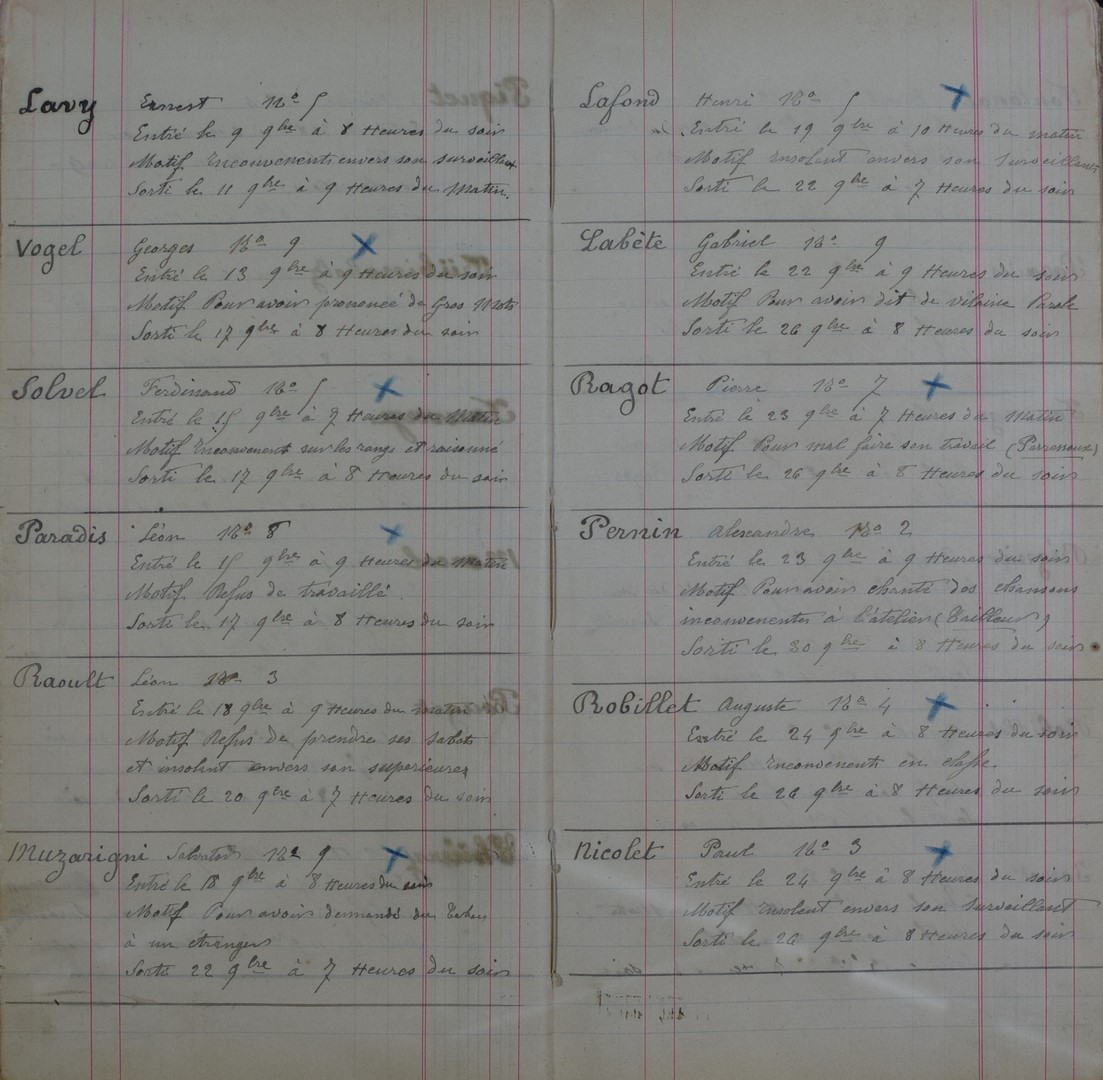 Lavy Ernest 5
Entré le 9 9bre à 8 Heures du soir
Motif Inconvenents envers son surveillant
Sorti le 11 9bre à 9 Heures du Matin.
Vogel Georges 9
Entré le 13 9bre à 9 Heures du soir
Motif Pour avoir prononcé de Gros Mots
Sorti le 17 9bre à 8 Heures du soir
Solvel Ferdinand 5
Entré le 15 9bre à 9 Heures du Matin
Motif Inconvenent sur les rangs et raisonné
Sorti le 17 9bre à 8 Heures du soir
Paradis Léon 8
Entré le 15 9bre à 9 Heures du Matin
Motif Refus de travaillé
Sorti le 17 9bre à 8 Heures du soir
Raoult Léon 3
Entré le 18 9bre à 9 Heures du matin
Motif Refus de prendre ses sabots
et insolent envers son superieures
Sorti le 20 9bre à 7 Heures du soir
Muzarigni Salvator 9
Entré le 18 9bre à 8 Heures du soir
Motif Pour avoir demandé du Tabac
à un etranger
Sorti 22 9bre à 7 Heures du soir
Lafond Henri 5
Entré le 19 9bre à 10 Heures du matin
Motif insolent envers son Surveillant
Sorti le 22 9bre à 7 Heures du soir
Labète Gabriel 9
Entré le 22 9bre à 9 Heures du soir
Motif Pour avoir dit de vilaine Parole
Sorti le 26 9bre à 8 Heures du soir
Ragot Pierre 7
Entré le 23 9bre à 7 Heures du Matin
Motif Pour mal faire son travail
Sorti le 26 9bre à 8 Heures du soir
Pernin Alexandre 2
Entré le 23 9bre à 9 Heures du soir
Motif Pour avoir chanté des chansons
inconvenentes à l'atelier (Tailleur)
Sorti le 30 9bre à 8 Heures du soir
Robillet Auguste 4
Entré le 24 9bre à 8 Heures du soir
Motif Inconvenents en classe
Sorti le 26 9bre à 8 Heures du soir
Nicolet Paul 3
Entré le 24 9bre à 8 Heures du soir
Motif insolent envers son Surveillant
Sorti le 26 9bre à 8 Heures du soir